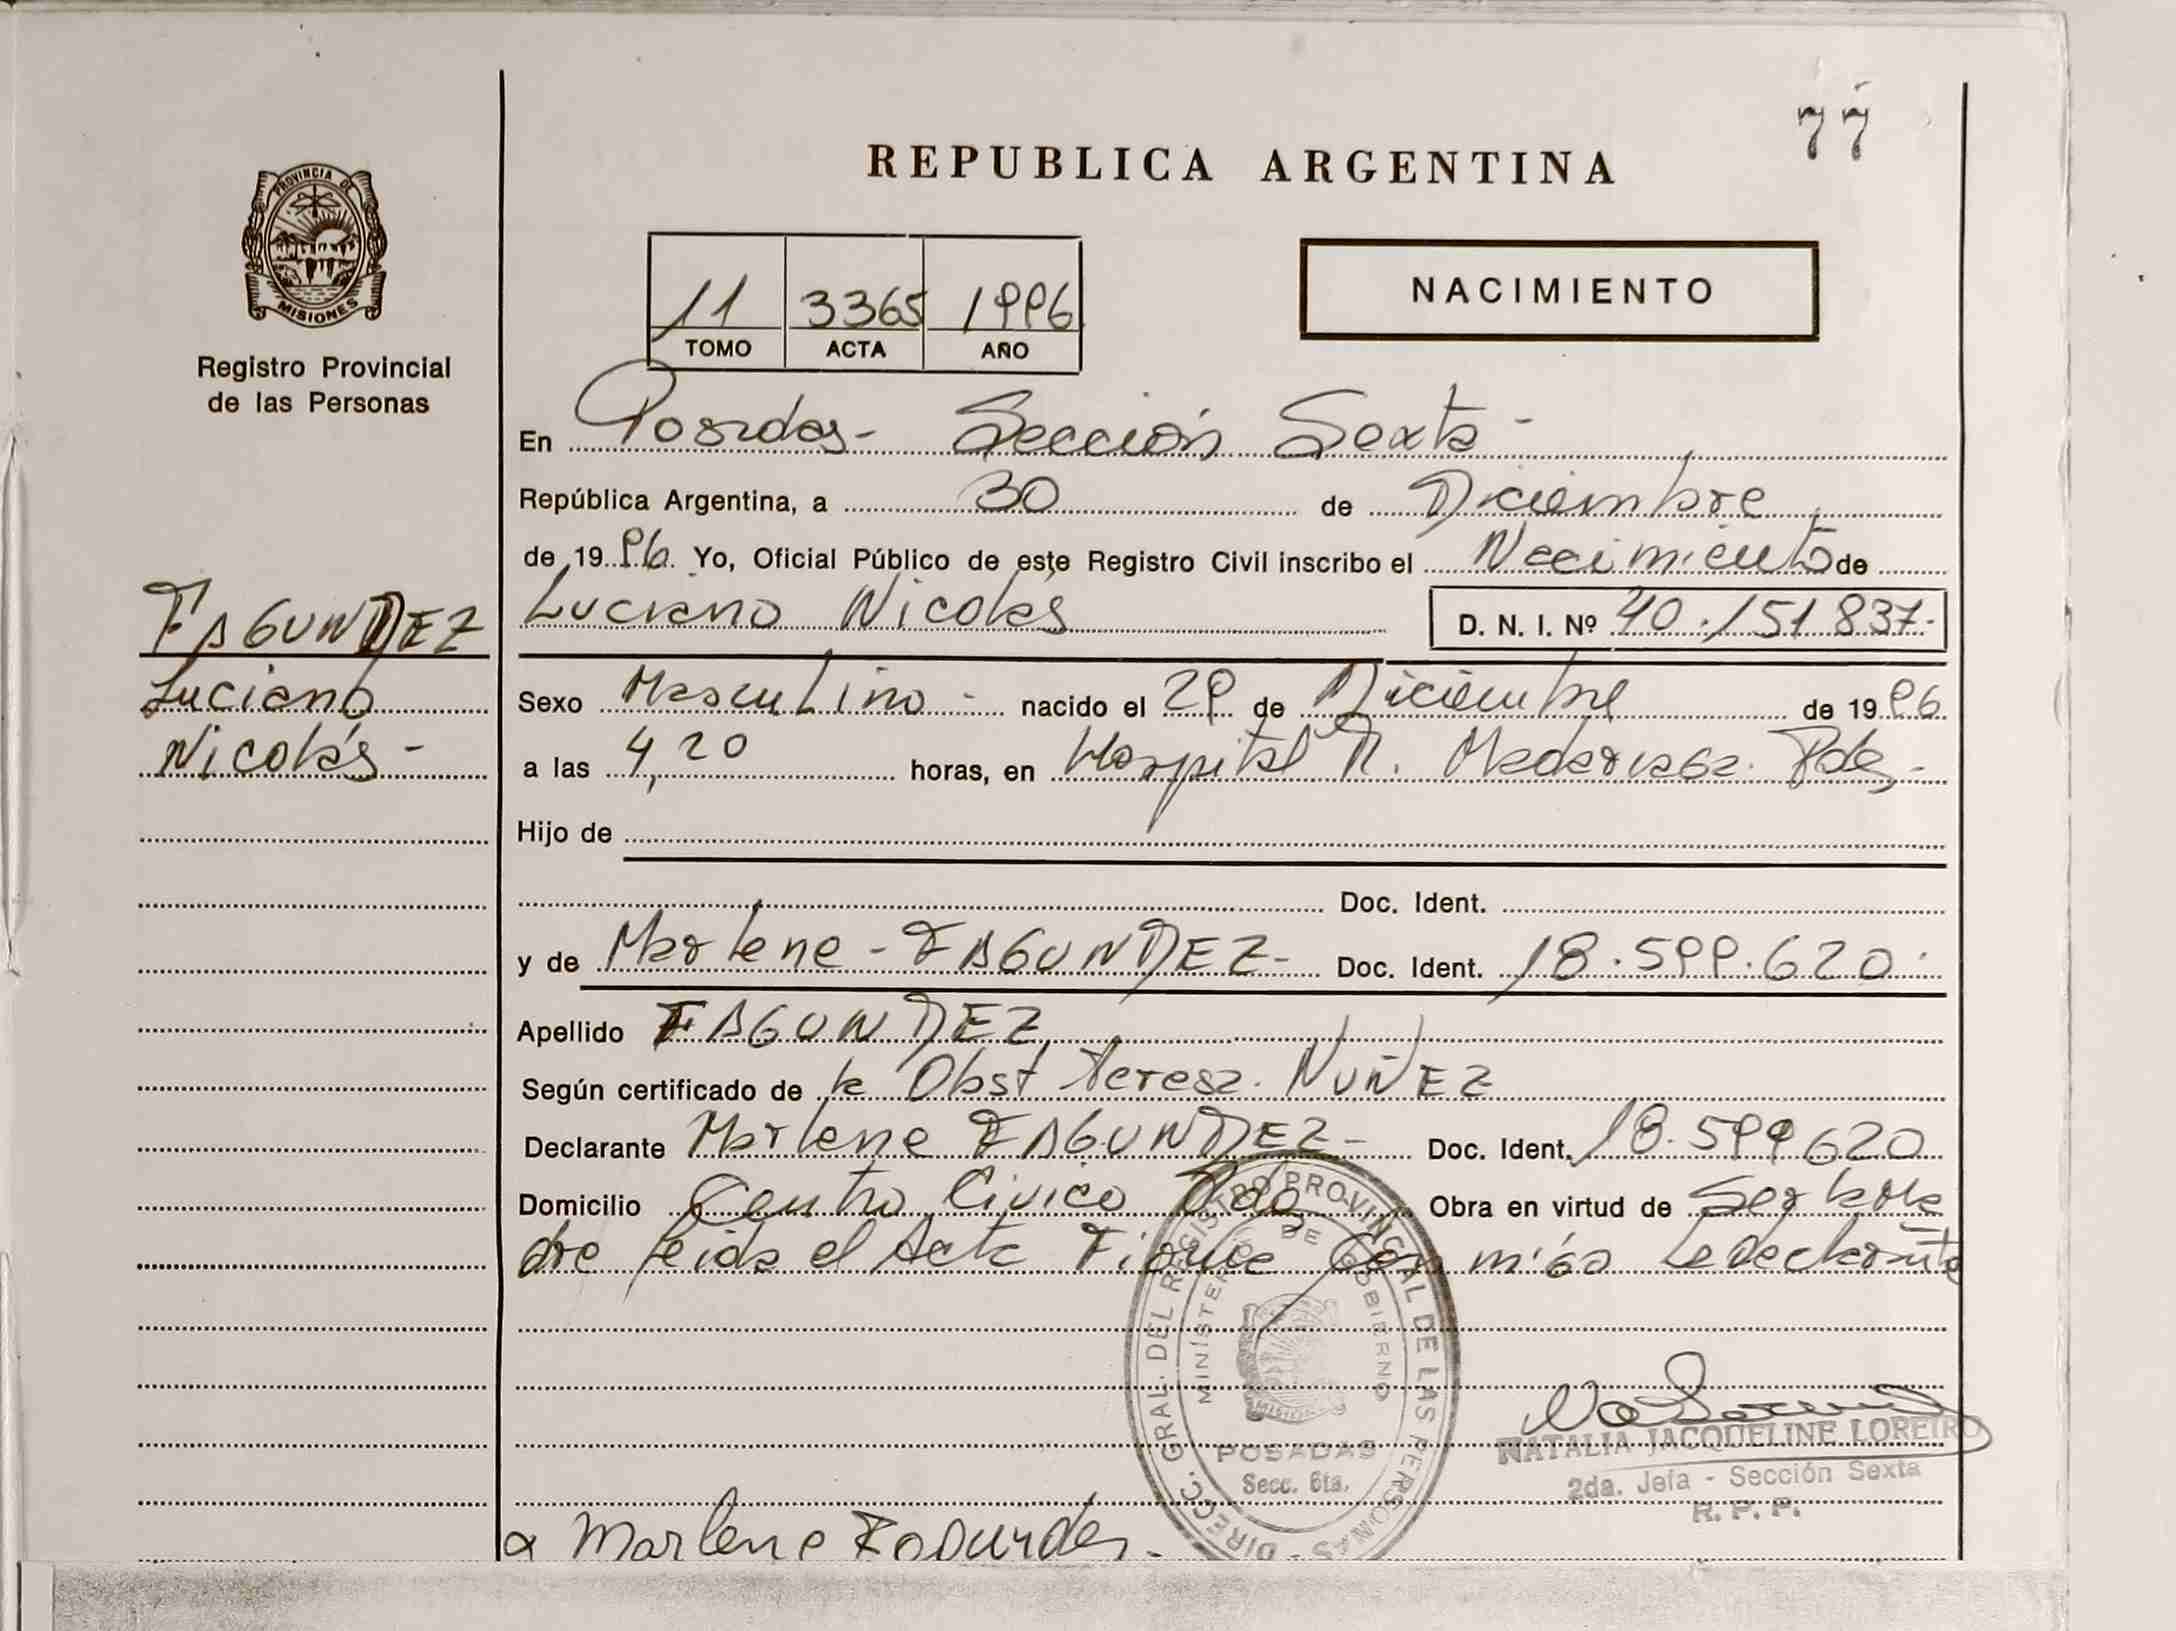 77
REPUBLICA ARGENTINA
PROVINCIA DE
MISIONES
Registro Provincial
de las Personas
11 3365 1996
TOMO ACTA AÑO
NACIMIENTO
En Posadas- Sección Sexta-
República Argentina, a 30 de Diciembre
de 1996. Yo, Oficial Público de este Registro Civil inscribo el Nacimiento de
Luciano Nicolás D. N. I. Nº 40.151.837-
FAGUNDEZ
Luciano
Nicolás-
Sexo Masculino- nacido el 29 de Diciembre de 1996
a las 4,20 horas, en Hospital R. Madariaga. Pdas-
Hijo de
Doc. Ident.
y de Marlene-FAGUNDEZ- Doc. Ident. 18.599.620
Apellido FAGUNDEZ
Según certificado de la Obst Teresa. NUÑEZ
Declarante Marlene FAGUNDEZ- Doc. Ident. 18.599620
Domicilio Centro Civico Obra en virtud de Ser la Ma
dre leida el Acta Firma Con migo la declarante
DIRECC. GRAL. DEL REGISTRO PROVINCIAL DE LAS PERSONAS
MINISTERIO DE GOBIERNO
MISIONES
POSADAS
Secc. 6ta.
NATALIA JACQUELINE LOREIRO
2da. Jefa - Sección Sexta
R. P. P.
Marlene Fagundez.